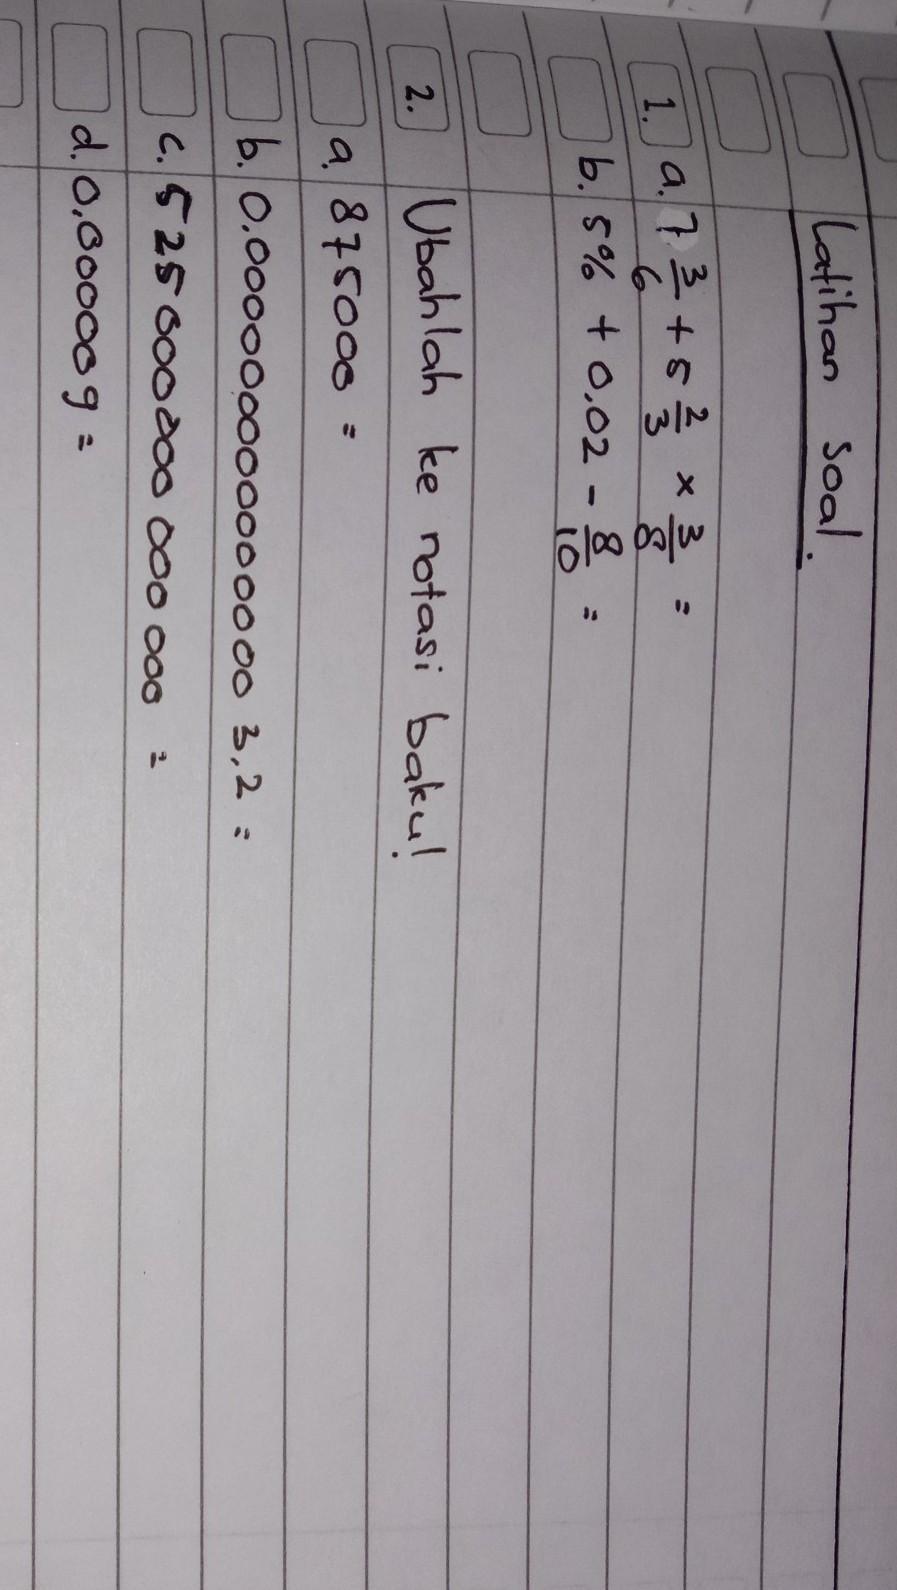 Latihan Soal.
1. a. 7 3/6 + 5 2/3 × 3/8 =
b. 5% + 0,02 - 8/10 =
2. Ubahlah ke notasi baku!
a. 875000 =
b. 0.0000000000000000 3,2 =
c. 525 000000 000 000 =
d. 0,00009 =